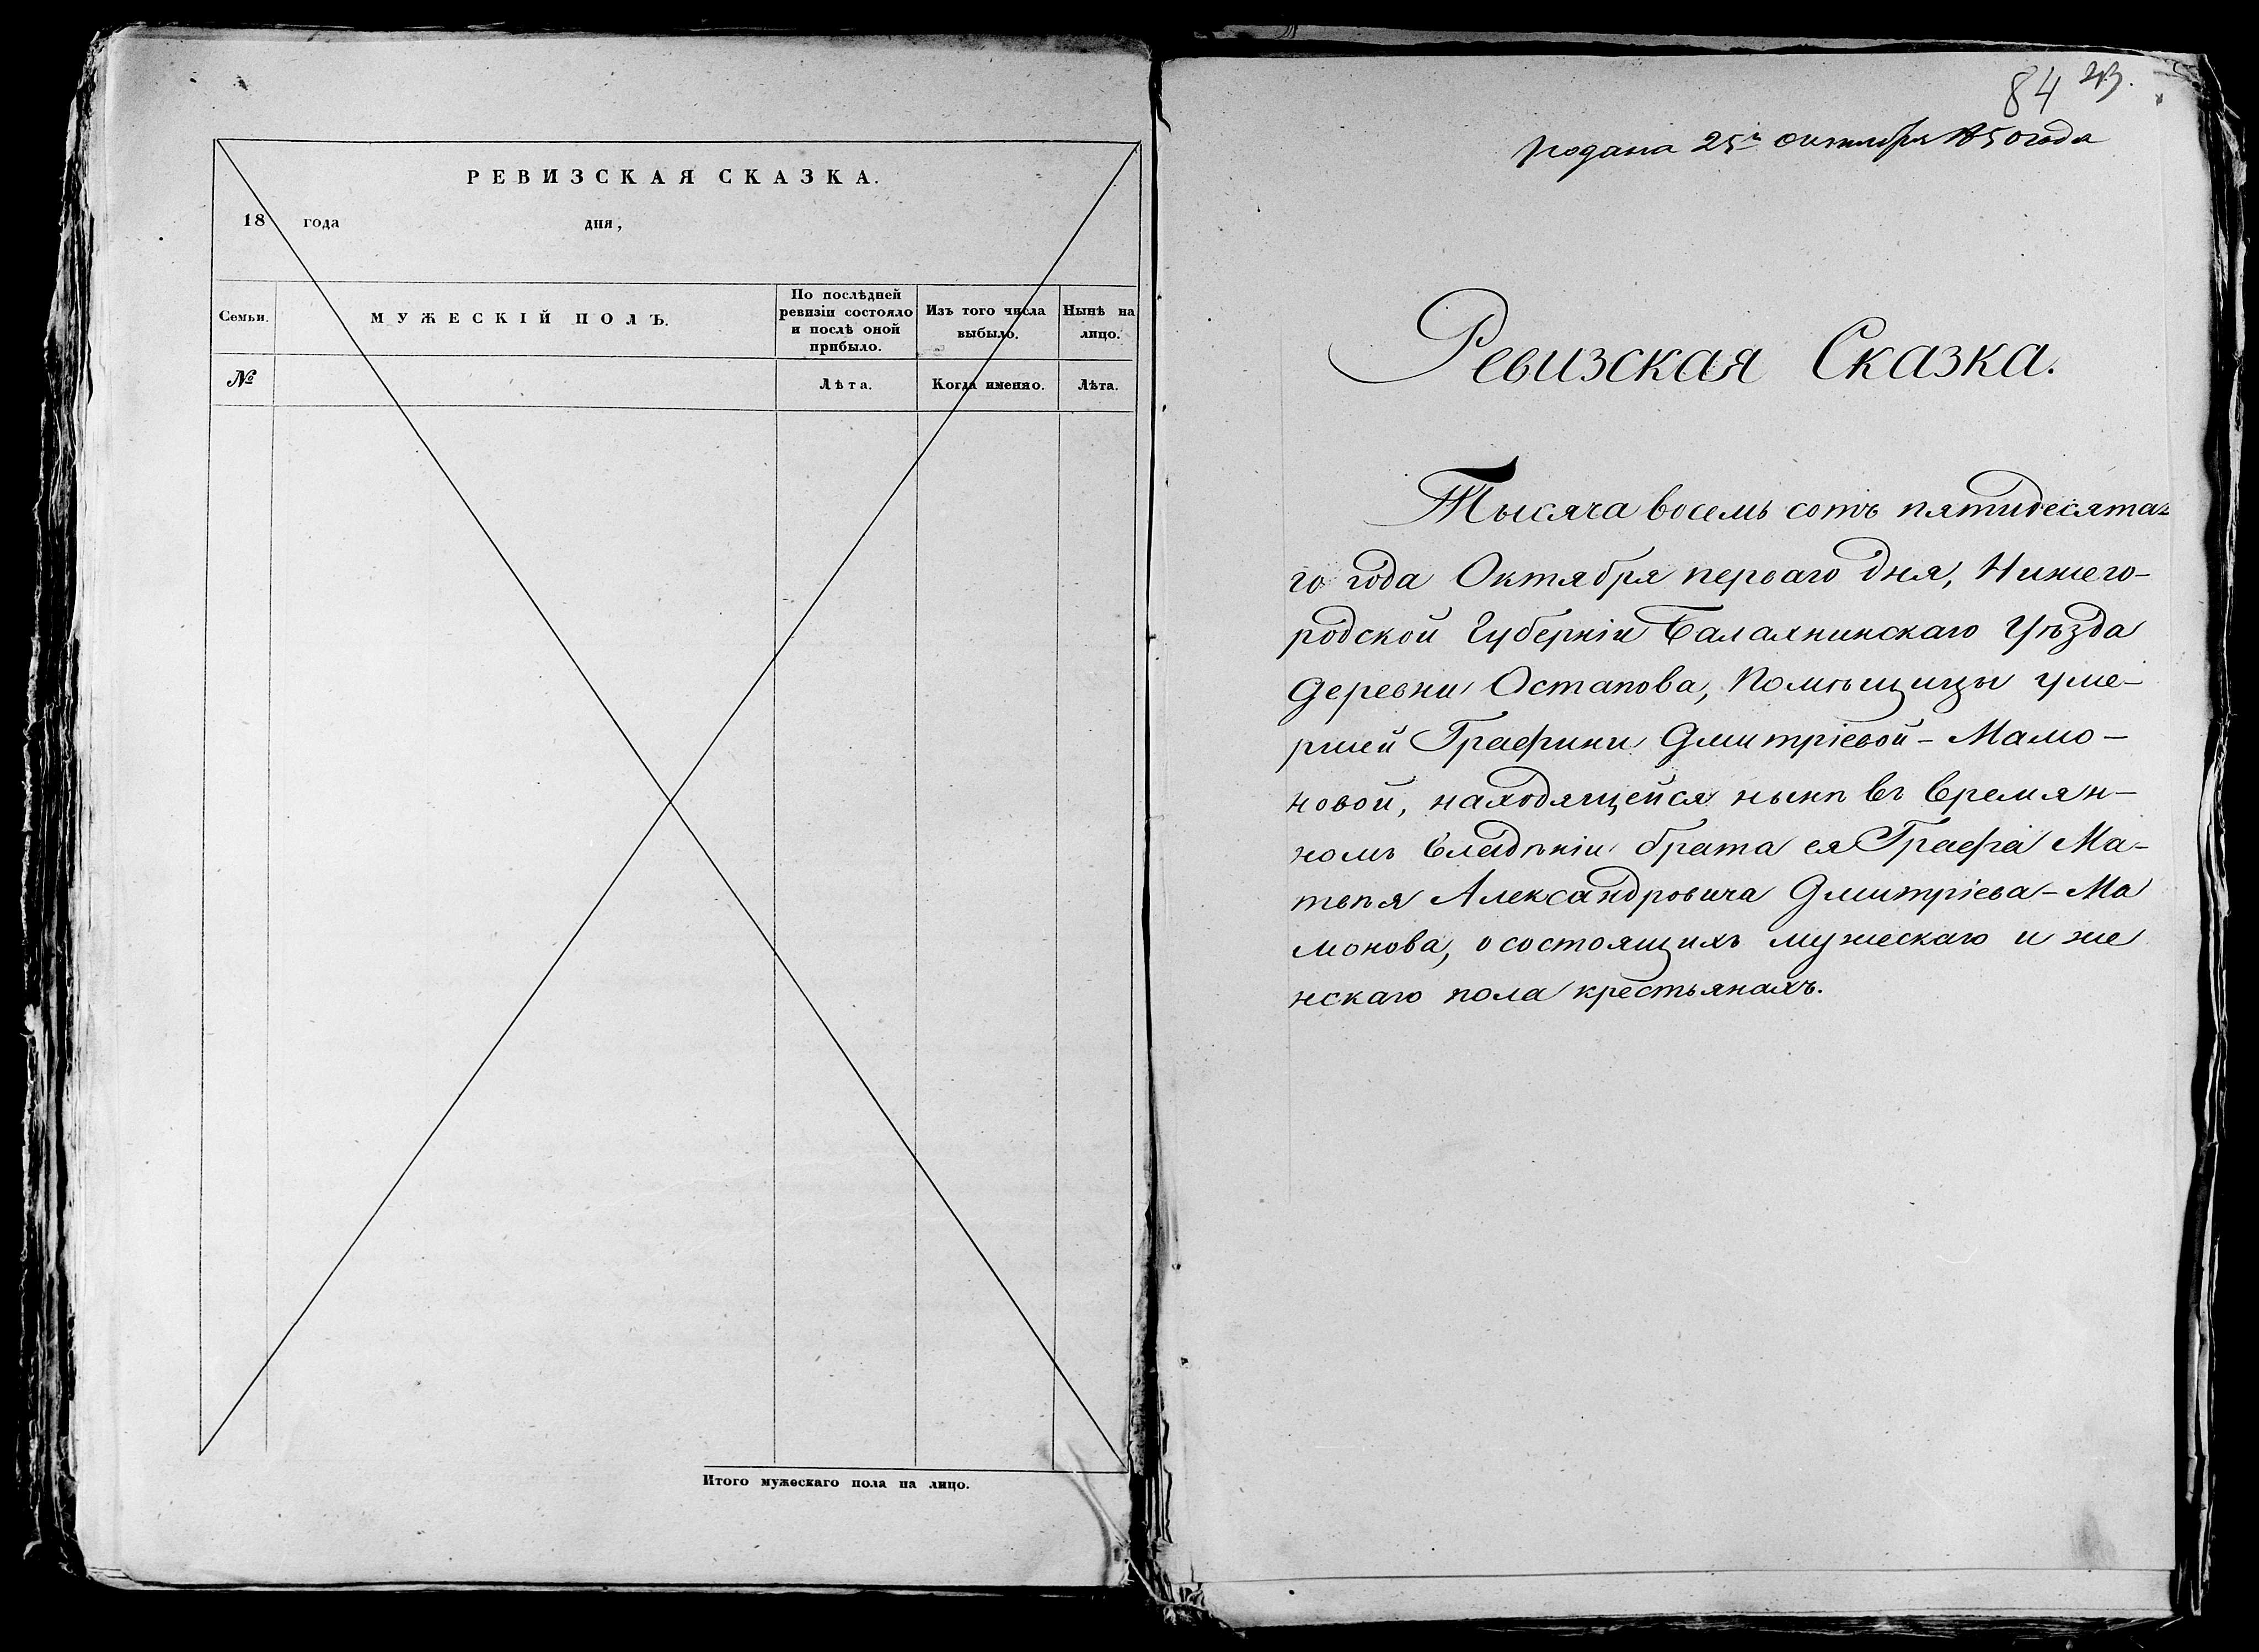 РЕВИЗСКАЯ СКАЗКА.
18 года дня,
Семьи.
МУЖЕСКІЙ ПОЛЪ.
По послѣдней
ревизіи состояло
и послѣ оной
прибыло.
Изъ того числа
выбыло.
Нынѣ на
лицо.
№
Лѣта.
Когда именно.
Лѣта.
Итого мужескаго пола на лицо.
84
подана 25го октября 1850 года
Ревизская Сказка.
Тысяча восемь сотъ пятидесята-
го года Октября перваго дня, Нижего-
родской Губерніи Балахнинскаго Уѣзда
Деревни Остапова, Помѣщицы уме-
ршей Графини Дмитріевой-Мамо-
новой, находящейся нынѣ въ времян-
номъ владѣніи брата ея Графа Ма-
твѣя Александровича Дмитріева-Ма
монова, о состоящихъ мужескаго и же
нскаго пола крестьянахъ.